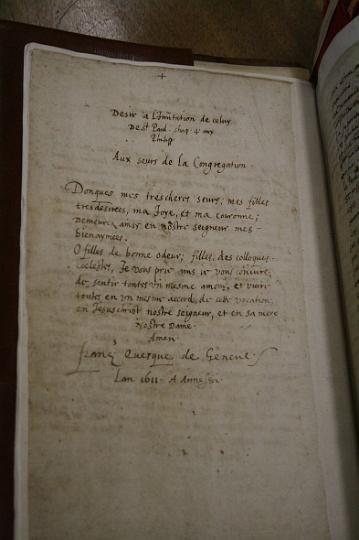 Desir a L'imitation de celuy
De St Paul. chap. 4 aux
Philip
Aux seurs de La Congregation.
Donques mes trescheres seurs, mes filles
tresdesirees, ma Joye, et ma couronne;
Demeurez ainsy en nostre seigneur mes
bienaymees.
O filles de bonne odeur, filles des colloques
celestes, Je vous prie mais je vous conjure,
de sentir toutes un mesme amour, et vivre
toutes en un mesme accord de cette vocation,
en Jesuschrist nostre seigneur, et en sa mere
Nostre Dame.
Amen.
franç Evesque de Geneve
Lan 1611. A Annessi.